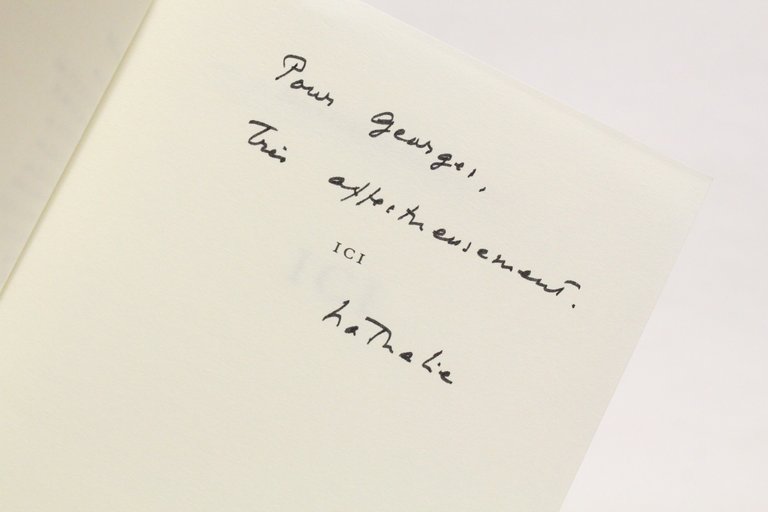 Pour Georges,
Très affectueusement.
ICI
Nathalie